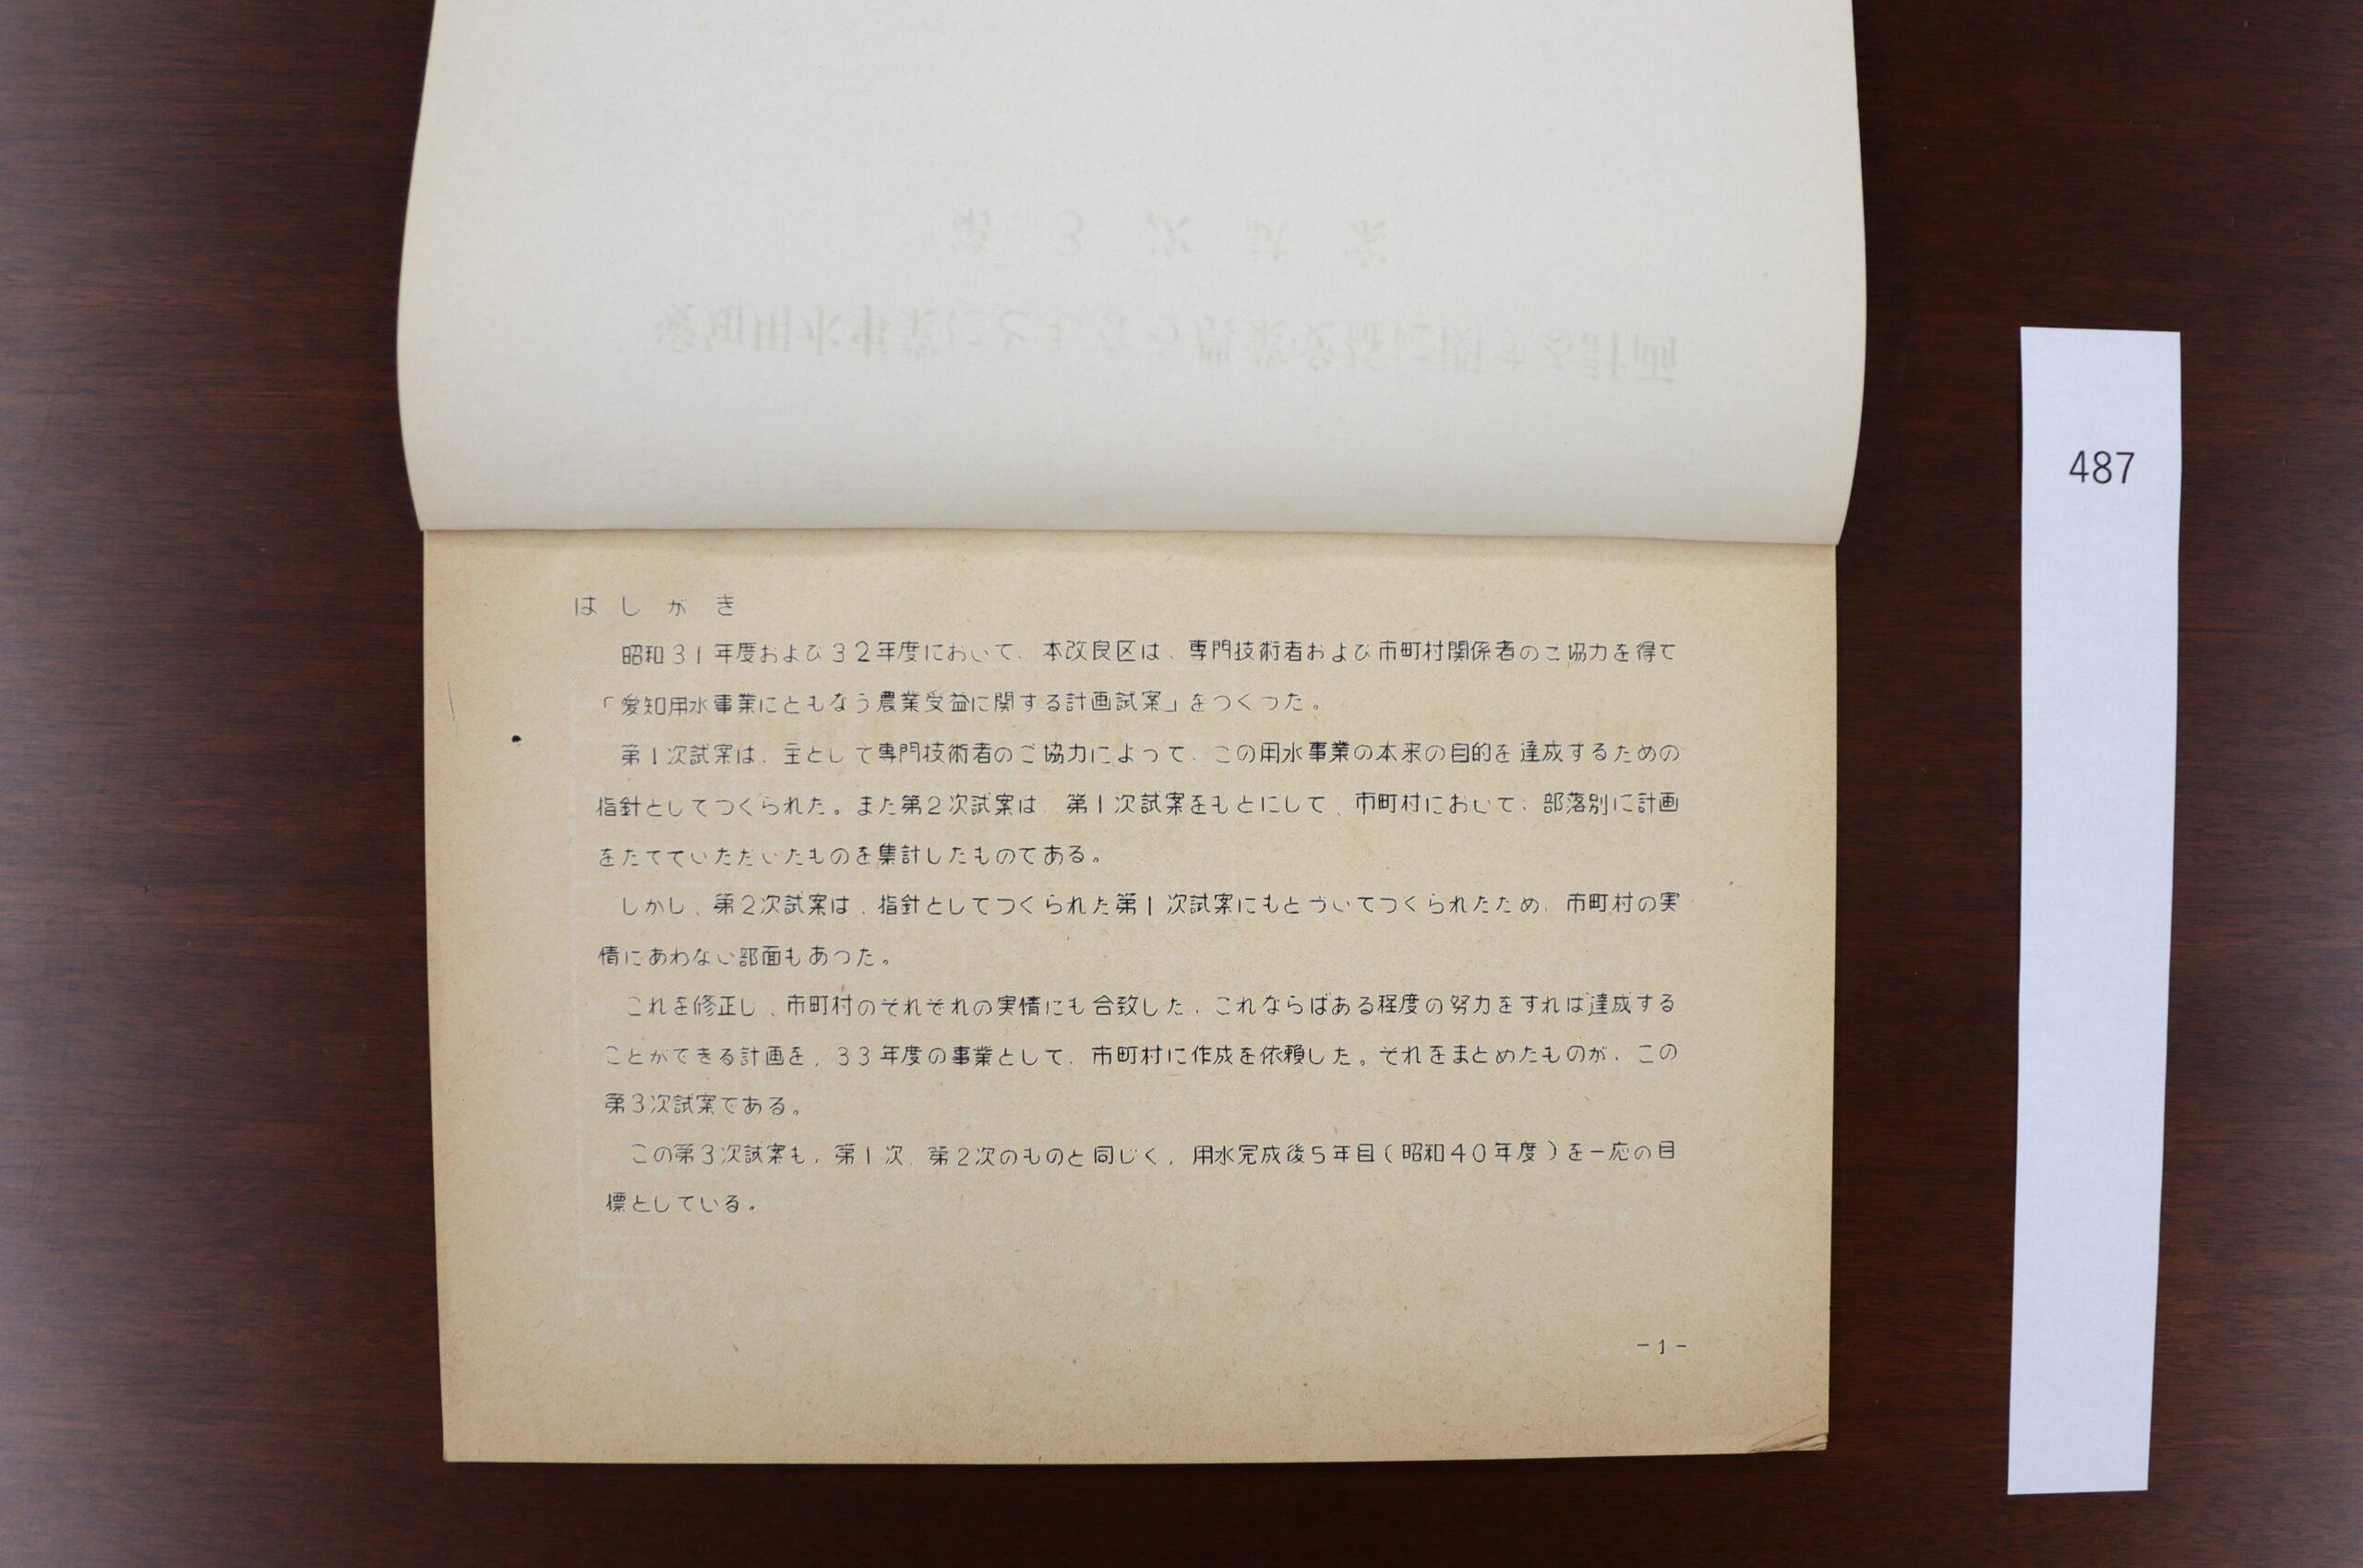 第3次試案
愛知用水事業にともなう農業受益に関する計画
487
はしがき
昭和31年度および32年度において、本改良区は、専門技術者および市町村関係者のご協力を得て
「愛知用水事業にともなう農業受益に関する計画試案」をつくつた。
第1次試案は、主として専門技術者のご協力によって、この用水事業の本来の目的を達成するための
指針としてつくられた。また第2次試案は、第1次試案をもとにして、市町村において、部落別に計画
をたてていただいたものを集計したものである。
しかし、第2次試案は、指針としてつくられた第1次試案にもとづいてつくられたため、市町村の実
情にあわない部面もあつた。
これを修正し、市町村のそれぞれの実情にも合致した、これならばある程度の努力をすれば達成する
ことができる計画を、33年度の事業として、市町村に作成を依頼した。それをまとめたものが、この
第3次試案である。
この第3次試案も、第1次、第2次のものと同じく、用水完成後5年目(昭和40年度)を一応の目
標としている。
-1-